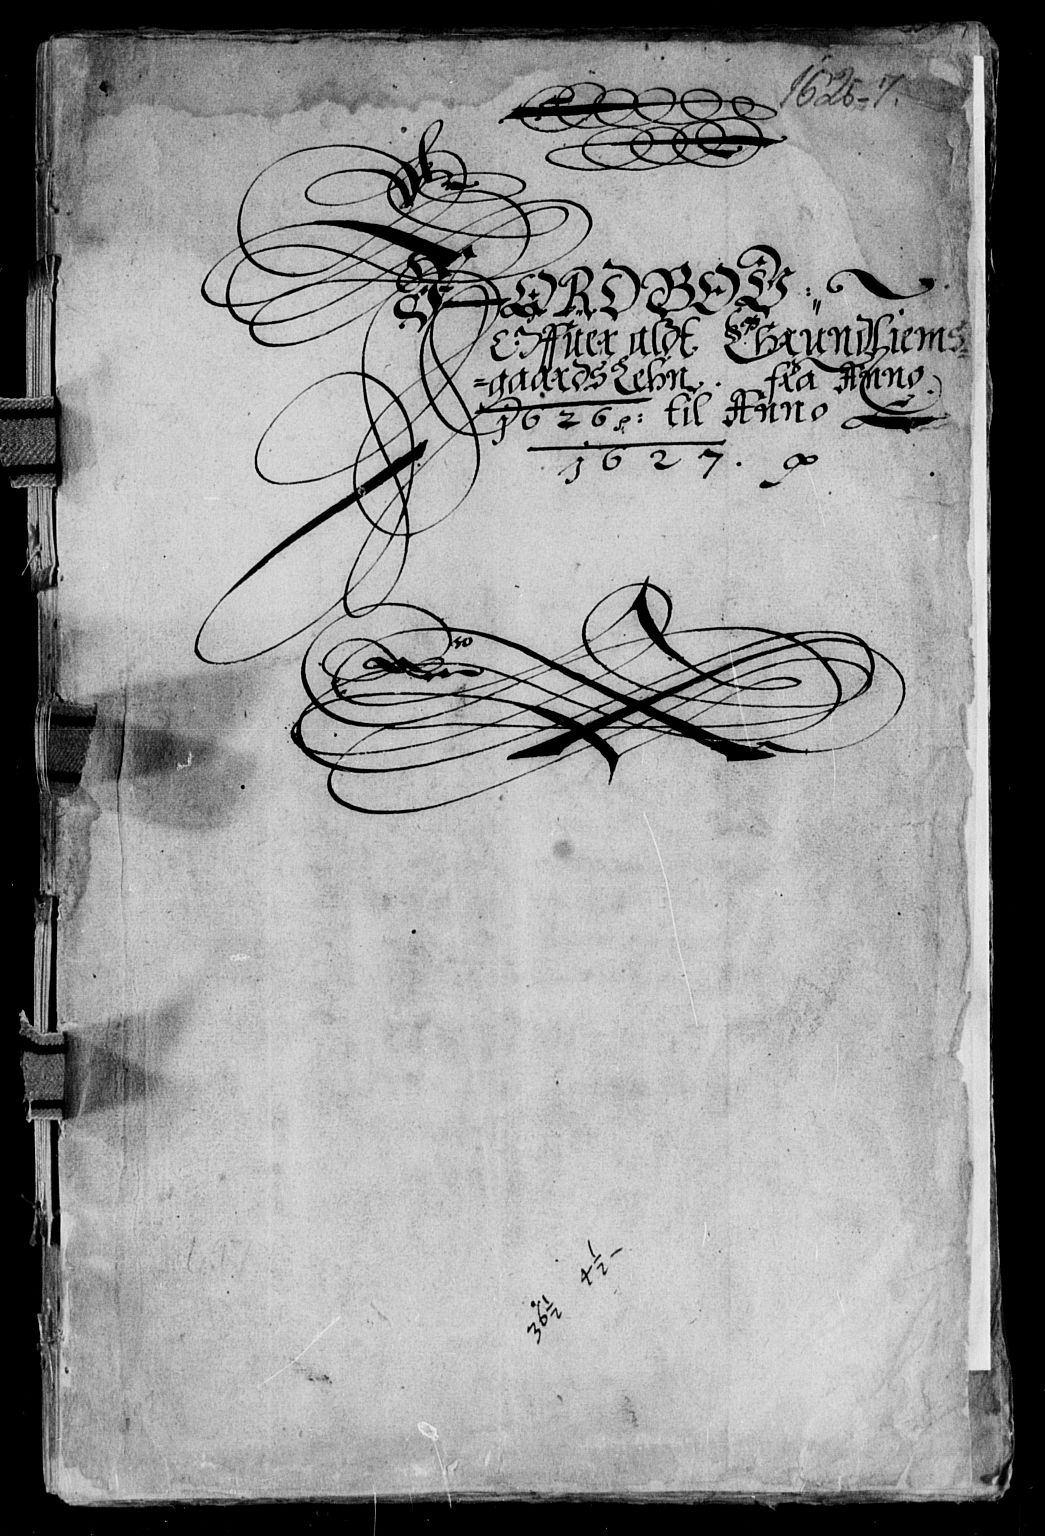 1626-7.
JORDBOG
Offuer aldt Thrundhiems-
-gaards Lehn. fra Anno
1626: til Anno
1627.
4 1/2 -
36 1/2